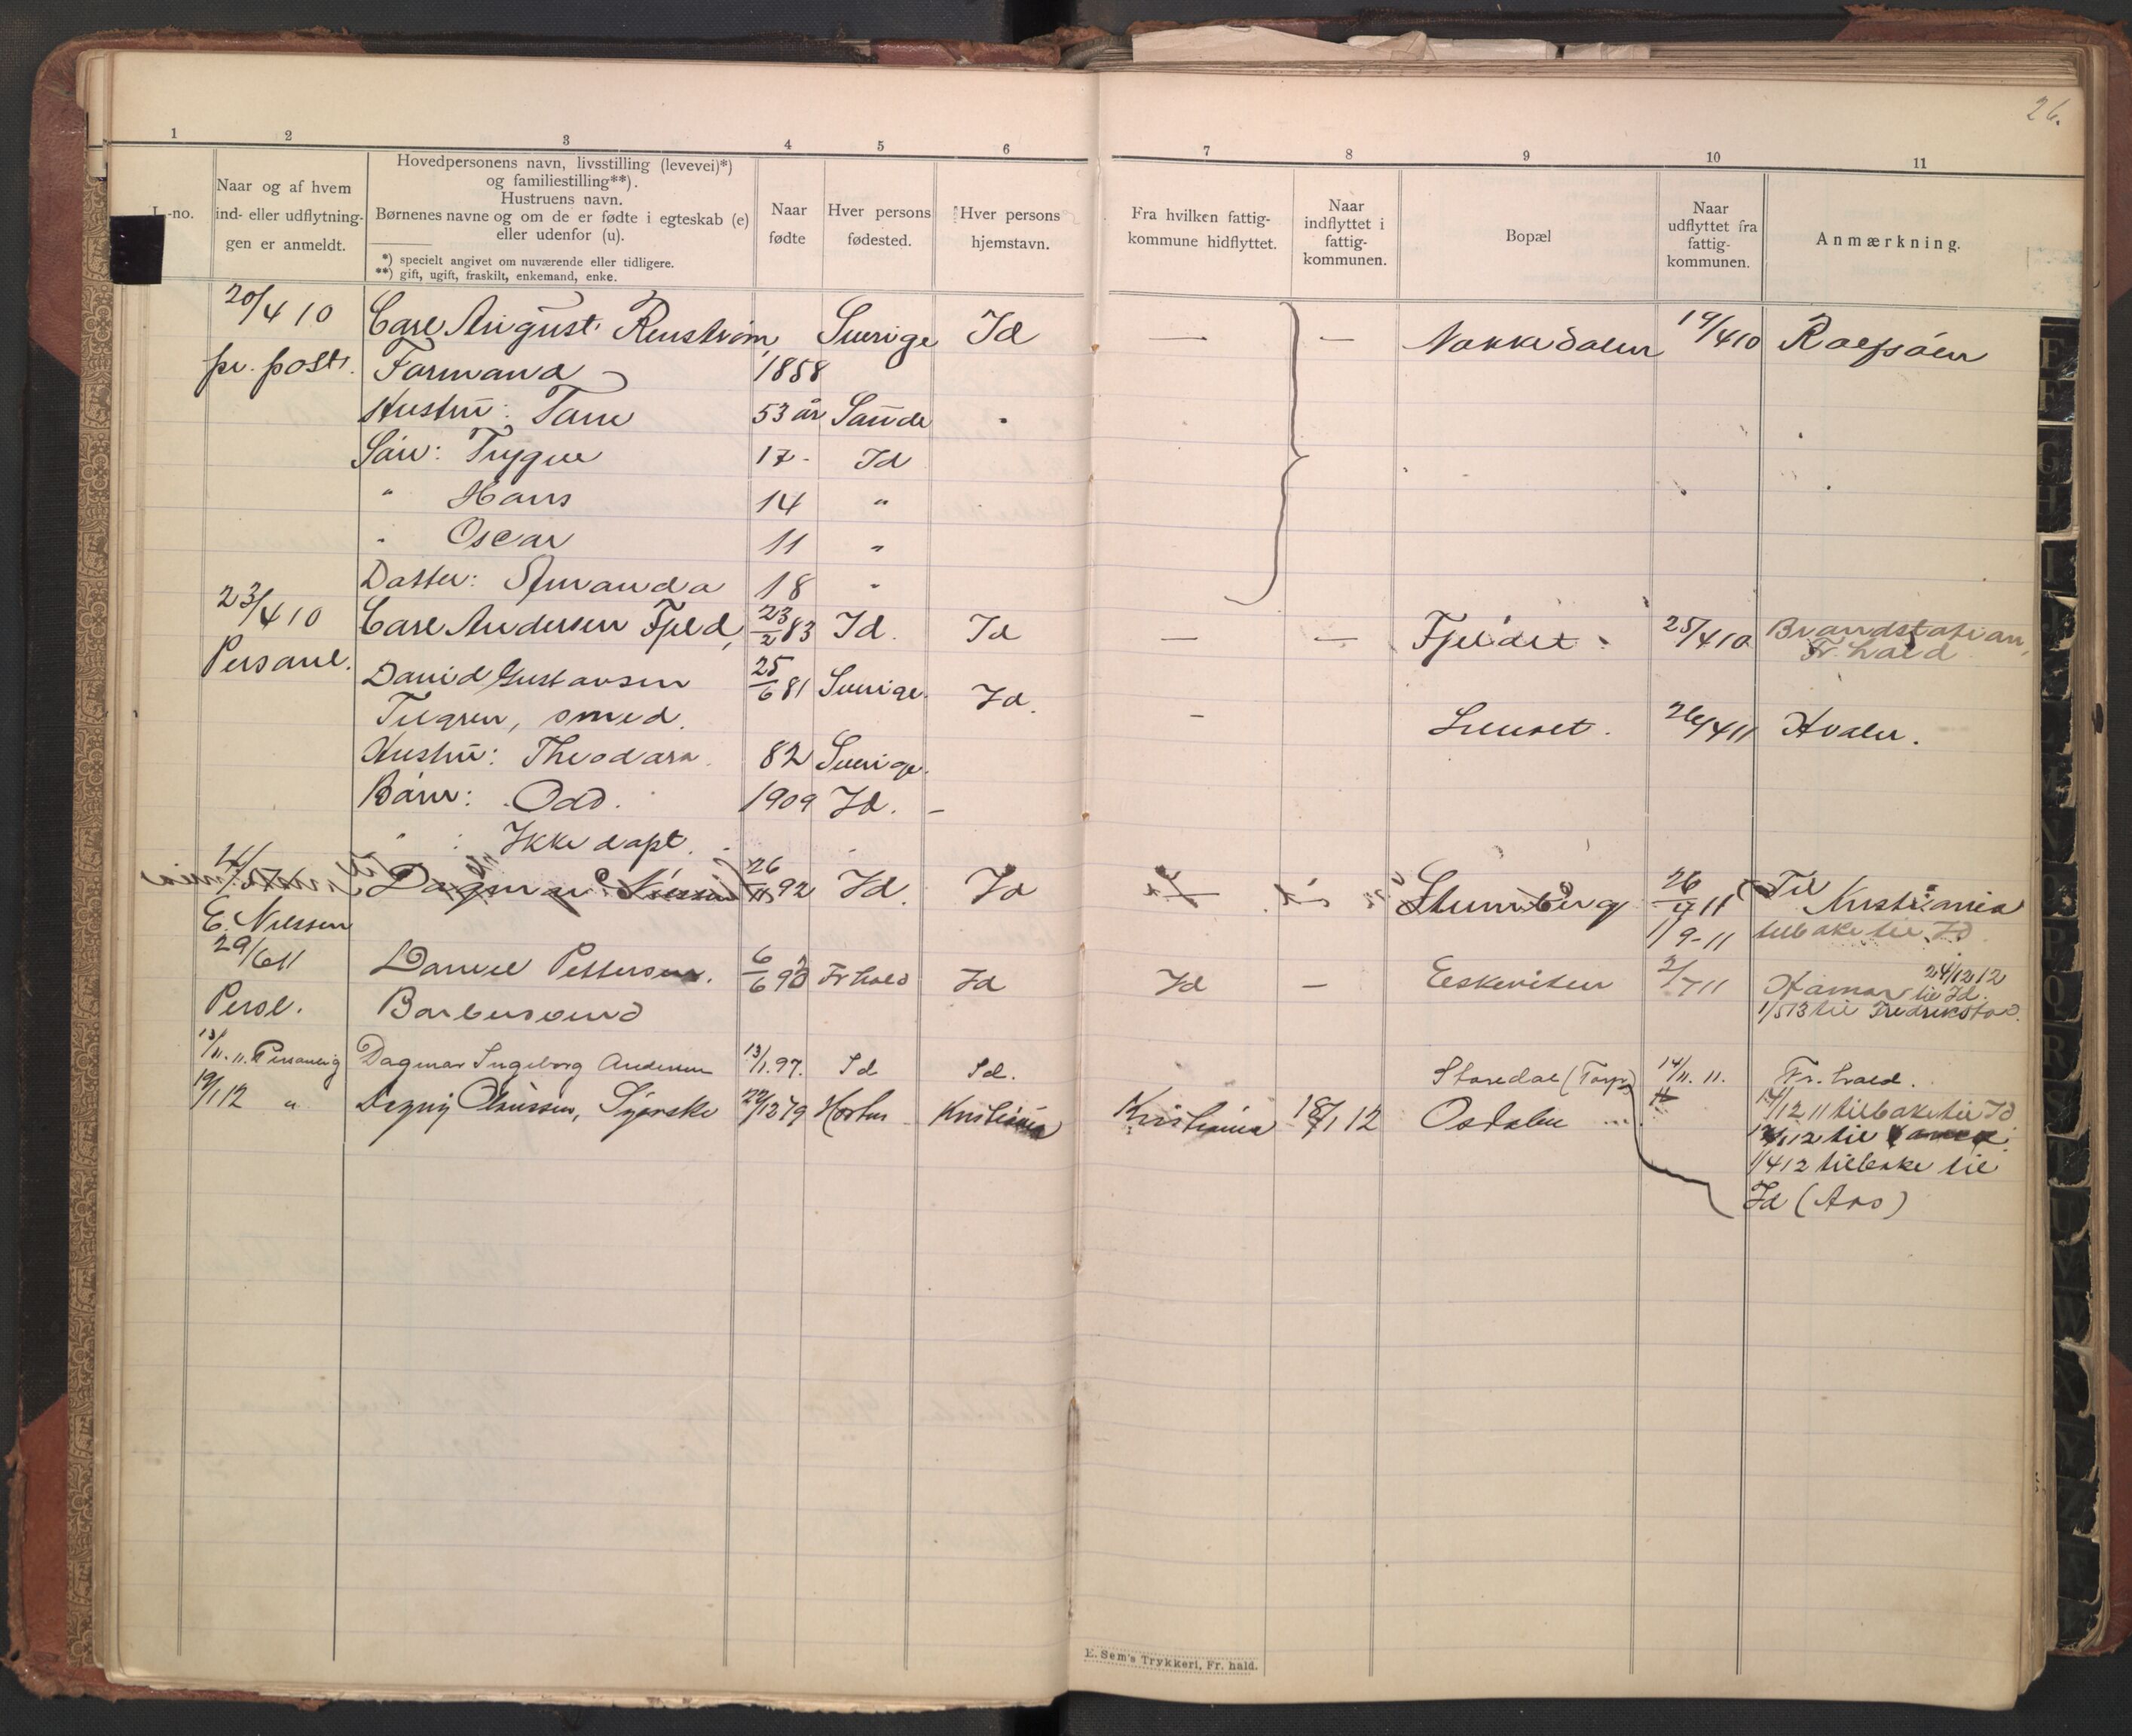 26.
1 2 3 4 5 6 7 8 9 10 11
-no.
Naar og af hvem
ind- eller udflytnin-
gen er anmeldt.
Hovedpersonens navn, livsstilling (levevei)*)
og familiestilling**).
Hustruens navn.
Børnenes navne og om de er fødte i egteskab (e)
eller udenfor (u).
*) specielt angivet om nuværende eller tidligere.
**) gift, ugift, fraskilt, enkemand, enke.
Naar
fødte
Hver persons
fødested.
Hver persons
hjemstavn.
Fra hvilken fattig-
kommune hidflyttet.
Naar
indflyttet i
fattig-
kommunen.
Bopæl
Naar
udflyttet fra
fattig-
kommunen.
Anmærkning.
20/4 10 Carl August Renström Sverige Id — — Nokkedalen 19/4 10 Rolfsöen
pr. post. Formand 1858
Hustru: 53 år Sande "
Sön: Trygve 17 - Id
" Hans 14 "
" Oscar 11 "
Datter: Amanda 18 "
23/4 10 Carl Andersen Fjeld, 23/2 83 Id. Id — — Fjeldet 25/4 10 Brandstation,
Fr.hald
Personl. David Gustavsen 25/6 81 Sverige. Id.
Tilgren, smed. — 26/4 11 Hvaler.
Hustru: Theodora. 82 Sverige.
Börn: Odd. 1909 Id. —
" : Ikke döpt.
Dagmar Nilssen 26/11 92 Id. Id 26/4 11 Til Kristiania
E. Nilssen 1/9-11 tilbake til Id
29/6 11 Daniel Pettersen. 6/6 90 Fr hald Id Id — Eskeviken 2/7 11 Hamar 24/12 12
til Id.
Persl. Barbersvend 1/5 13 til Fredrikstad.
13/11. 11. Personlig Dagmar Ingeborg Andersen 13/1. 97. Id Id. Storedal (Torp) 14/11. 11. Fr. hald.
19/1 12 " Dagny Olsussen, Syerske 22/12 79 Horten Kristiania Kristiania 18/1 12 Osdalen 14/12 11 tilbake til Id
1/12 til
1/4 12 tilbake til
Id (Aas)
E. Sem's Trykkeri, Fr. hald.